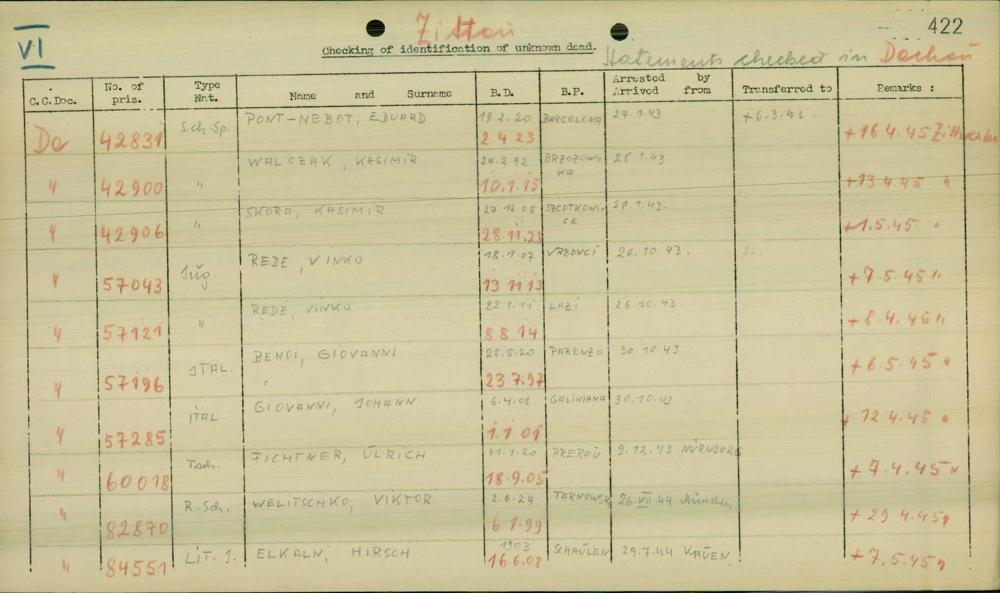 422
VI
Zittau
Checking of identification of unknown dead.
Statements checked in Dachau
C.C.Doc. No. of pris. Type Nat. Name and Surname B.D. B.P. Arrested by Arrived from Transferred to Remarks :
Sch-Sp. PONT-NEBOT, EDUARD 19.2.20 BARCELONA 27.1.43 +6.3.43.
Da 42831 2.4.23 +16.4.45
WALCZAK, KASIMIR 24.2.92 BRZOZOWO 28.1.43
WKA
" 42900 " 10.1.15 +13 4.45 "
SKORA, KASIMIR 27.12.08 SZCOTKOWI- 28.1.43.
CE
" 42906 " 28.11.25 +1.5.45 "
REDE, VINKO 18.1.07 VRBOVCI 26.10 43.
" 57043 Jug 13 11 13 +7.5.45 "
REDE, VINKO 22.1.11. LAZI 26.10.43.
" 57121 " 8 8.14 +8.4.45 "
BENCI, GIOVANNI 28.5.20 PARENZO 30.10 43.
" 57196 JTAL. 23.7.97 +6.5.45 "
GIOVANNI, JOHANN 6.4.08 GALINIANA 30.10.43
" 57285 JTAL. 1.1 01 + 12.4.45 "
FICHTNER, ULRICH 31.1.20 PRERAU 9.12.43 NÜRNBERG
" 60018 Tsch. 18.9.05 +7.4.45 "
R.-Sch. WELITSCHKO, VIKTOR 2.6.24 TARNOWSK 26.VII 44 München
" 82870 6 1.99 + 29 4.45 "
LIT. J. ELKALN, HIRSCH 1903 SCHAULEN 29.7.44 KAUEN
" 84551 16.6.08 +7.5.45 "